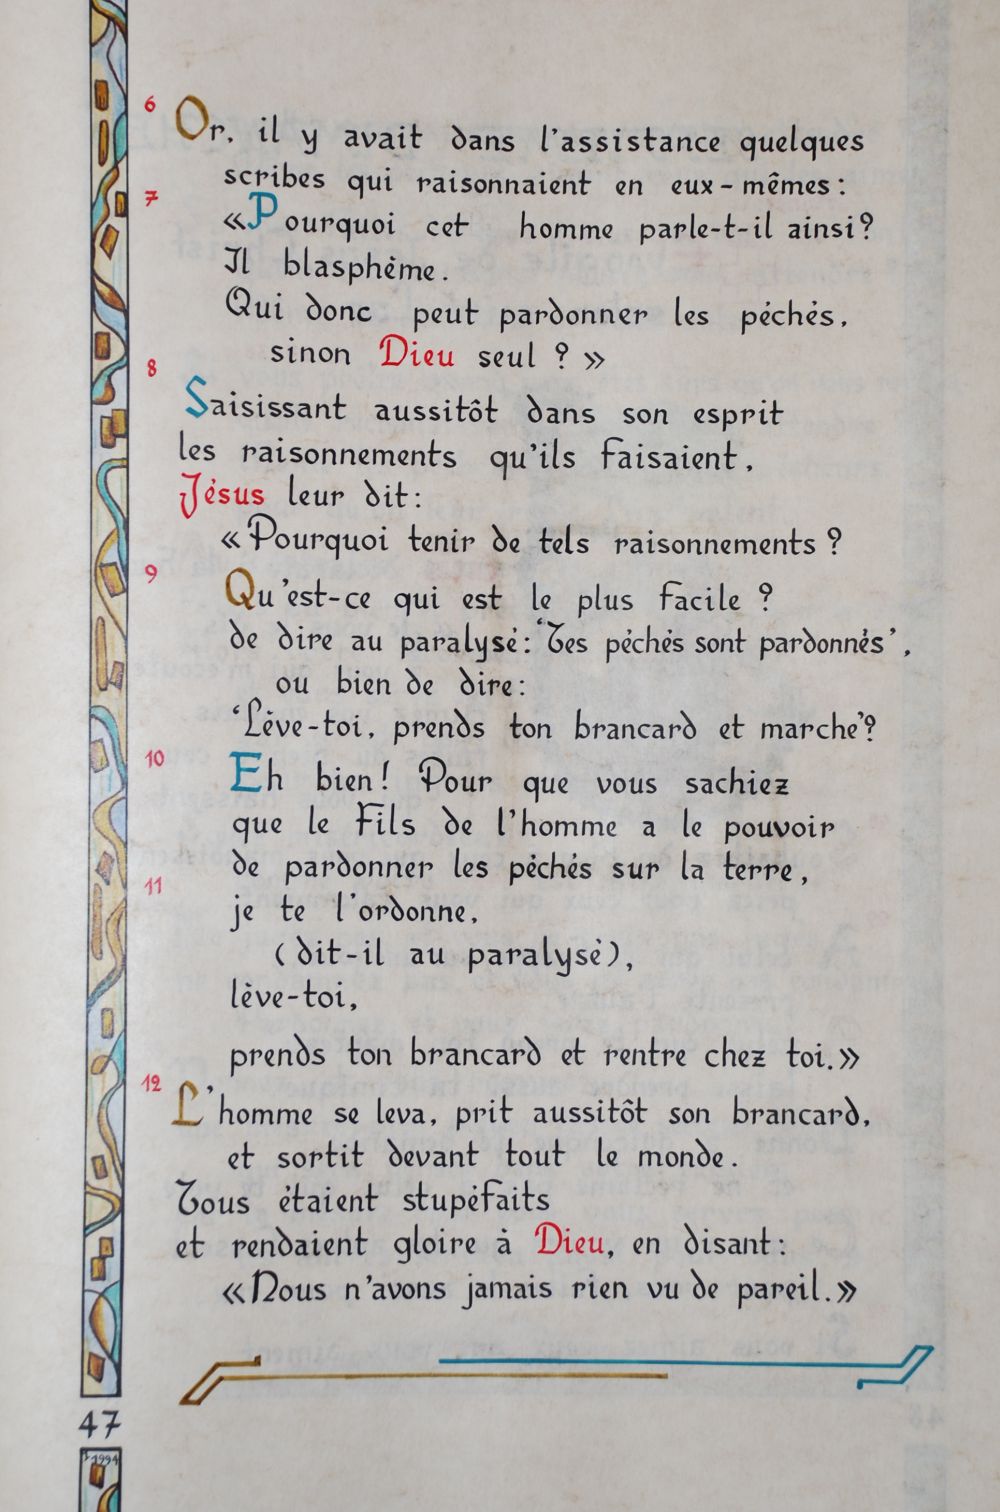 6
Or, il y avait dans l'assistance quelques
scribes qui raisonnaient en eux-mêmes :
7
«Pourquoi cet homme parle-t-il ainsi ?
Il blasphème.
Qui donc peut pardonner les péchés,
sinon Dieu seul ? »
8
Saisissant aussitôt dans son esprit
les raisonnements qu'ils faisaient,
Jésus leur dit :
« Pourquoi tenir de tels raisonnements ?
9
Qu'est-ce qui est le plus facile ?
de dire au paralysé : 'Tes péchés sont pardonnés',
ou bien de dire :
'Lève-toi, prends ton brancard et marche'?
10
Eh bien ! Pour que vous sachiez
que le Fils de l'homme a le pouvoir
de pardonner les péchés sur la terre,
11
je te l'ordonne,
(dit-il au paralysé),
lève-toi,
prends ton brancard et rentre chez toi.»
12
L'homme se leva, prit aussitôt son brancard,
et sortit devant tout le monde.
Tous étaient stupéfaits
et rendaient gloire à Dieu, en disant :
«Nous n'avons jamais rien vu de pareil.»
47
1994